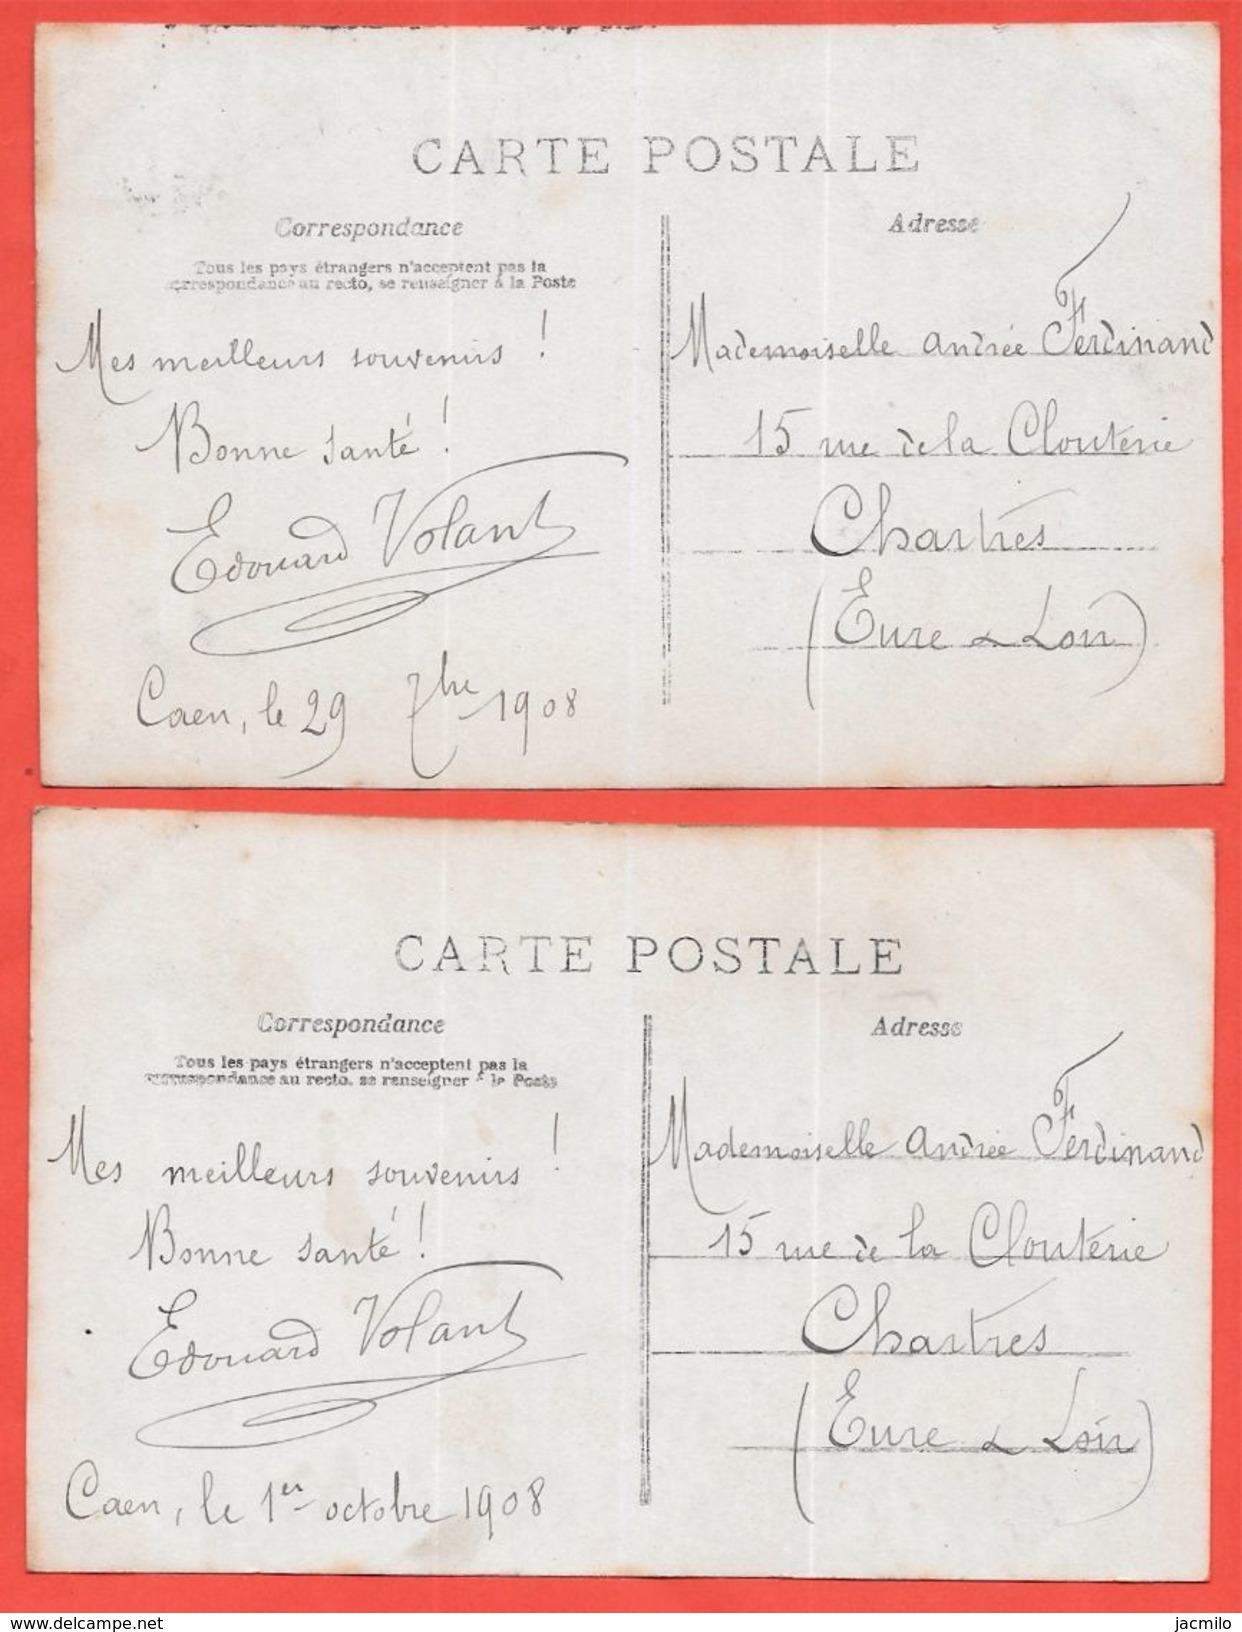 CARTE POSTALE
Correspondance
Tous les pays étrangers n'acceptent pas la
correspondance au recto, se renseigner à la Poste
Mes meilleurs souvenirs !
Bonne santé !
Edouard Volant
Caen, le 29 7bre 1908
Adresse
Mademoiselle Andrée Ferdinand
15 rue de la Clouterie
Chartres
(Eure & Loir)
CARTE POSTALE
Correspondance
Tous les pays étrangers n'acceptent pas la
correspondance au recto, se renseigner à la Poste
Mes meilleurs souvenirs !
Bonne santé !
Edouard Volant
Caen, le 1er octobre 1908
Adresse
Mademoiselle Andrée Ferdinand
15 rue de la Clouterie
Chartres
(Eure & Loir)
www.delcampe.net
jacmilo